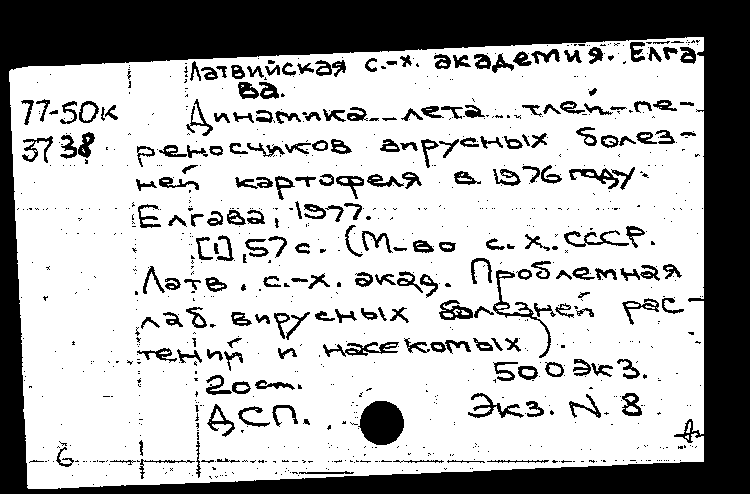 Латвийская с.-х. академия. Елга-
ва.
77-50к Динамика лета тлей-пе-
3738 реносчиков вирусных болез-
ней картофеля в 1976 году.
Елгава, 1977.
[1], 57 с. (М-во с.х. СССР.
Латв. с.-х. акад. Проблемная
лаб. вирусных болезней рас-
тений и насекомых).
20 ст. 500 экз.
ДСП. Экз. N 8
б